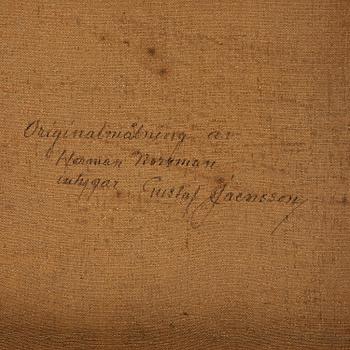 Originalmålning av
Herman Norrman
intygar Gustaf